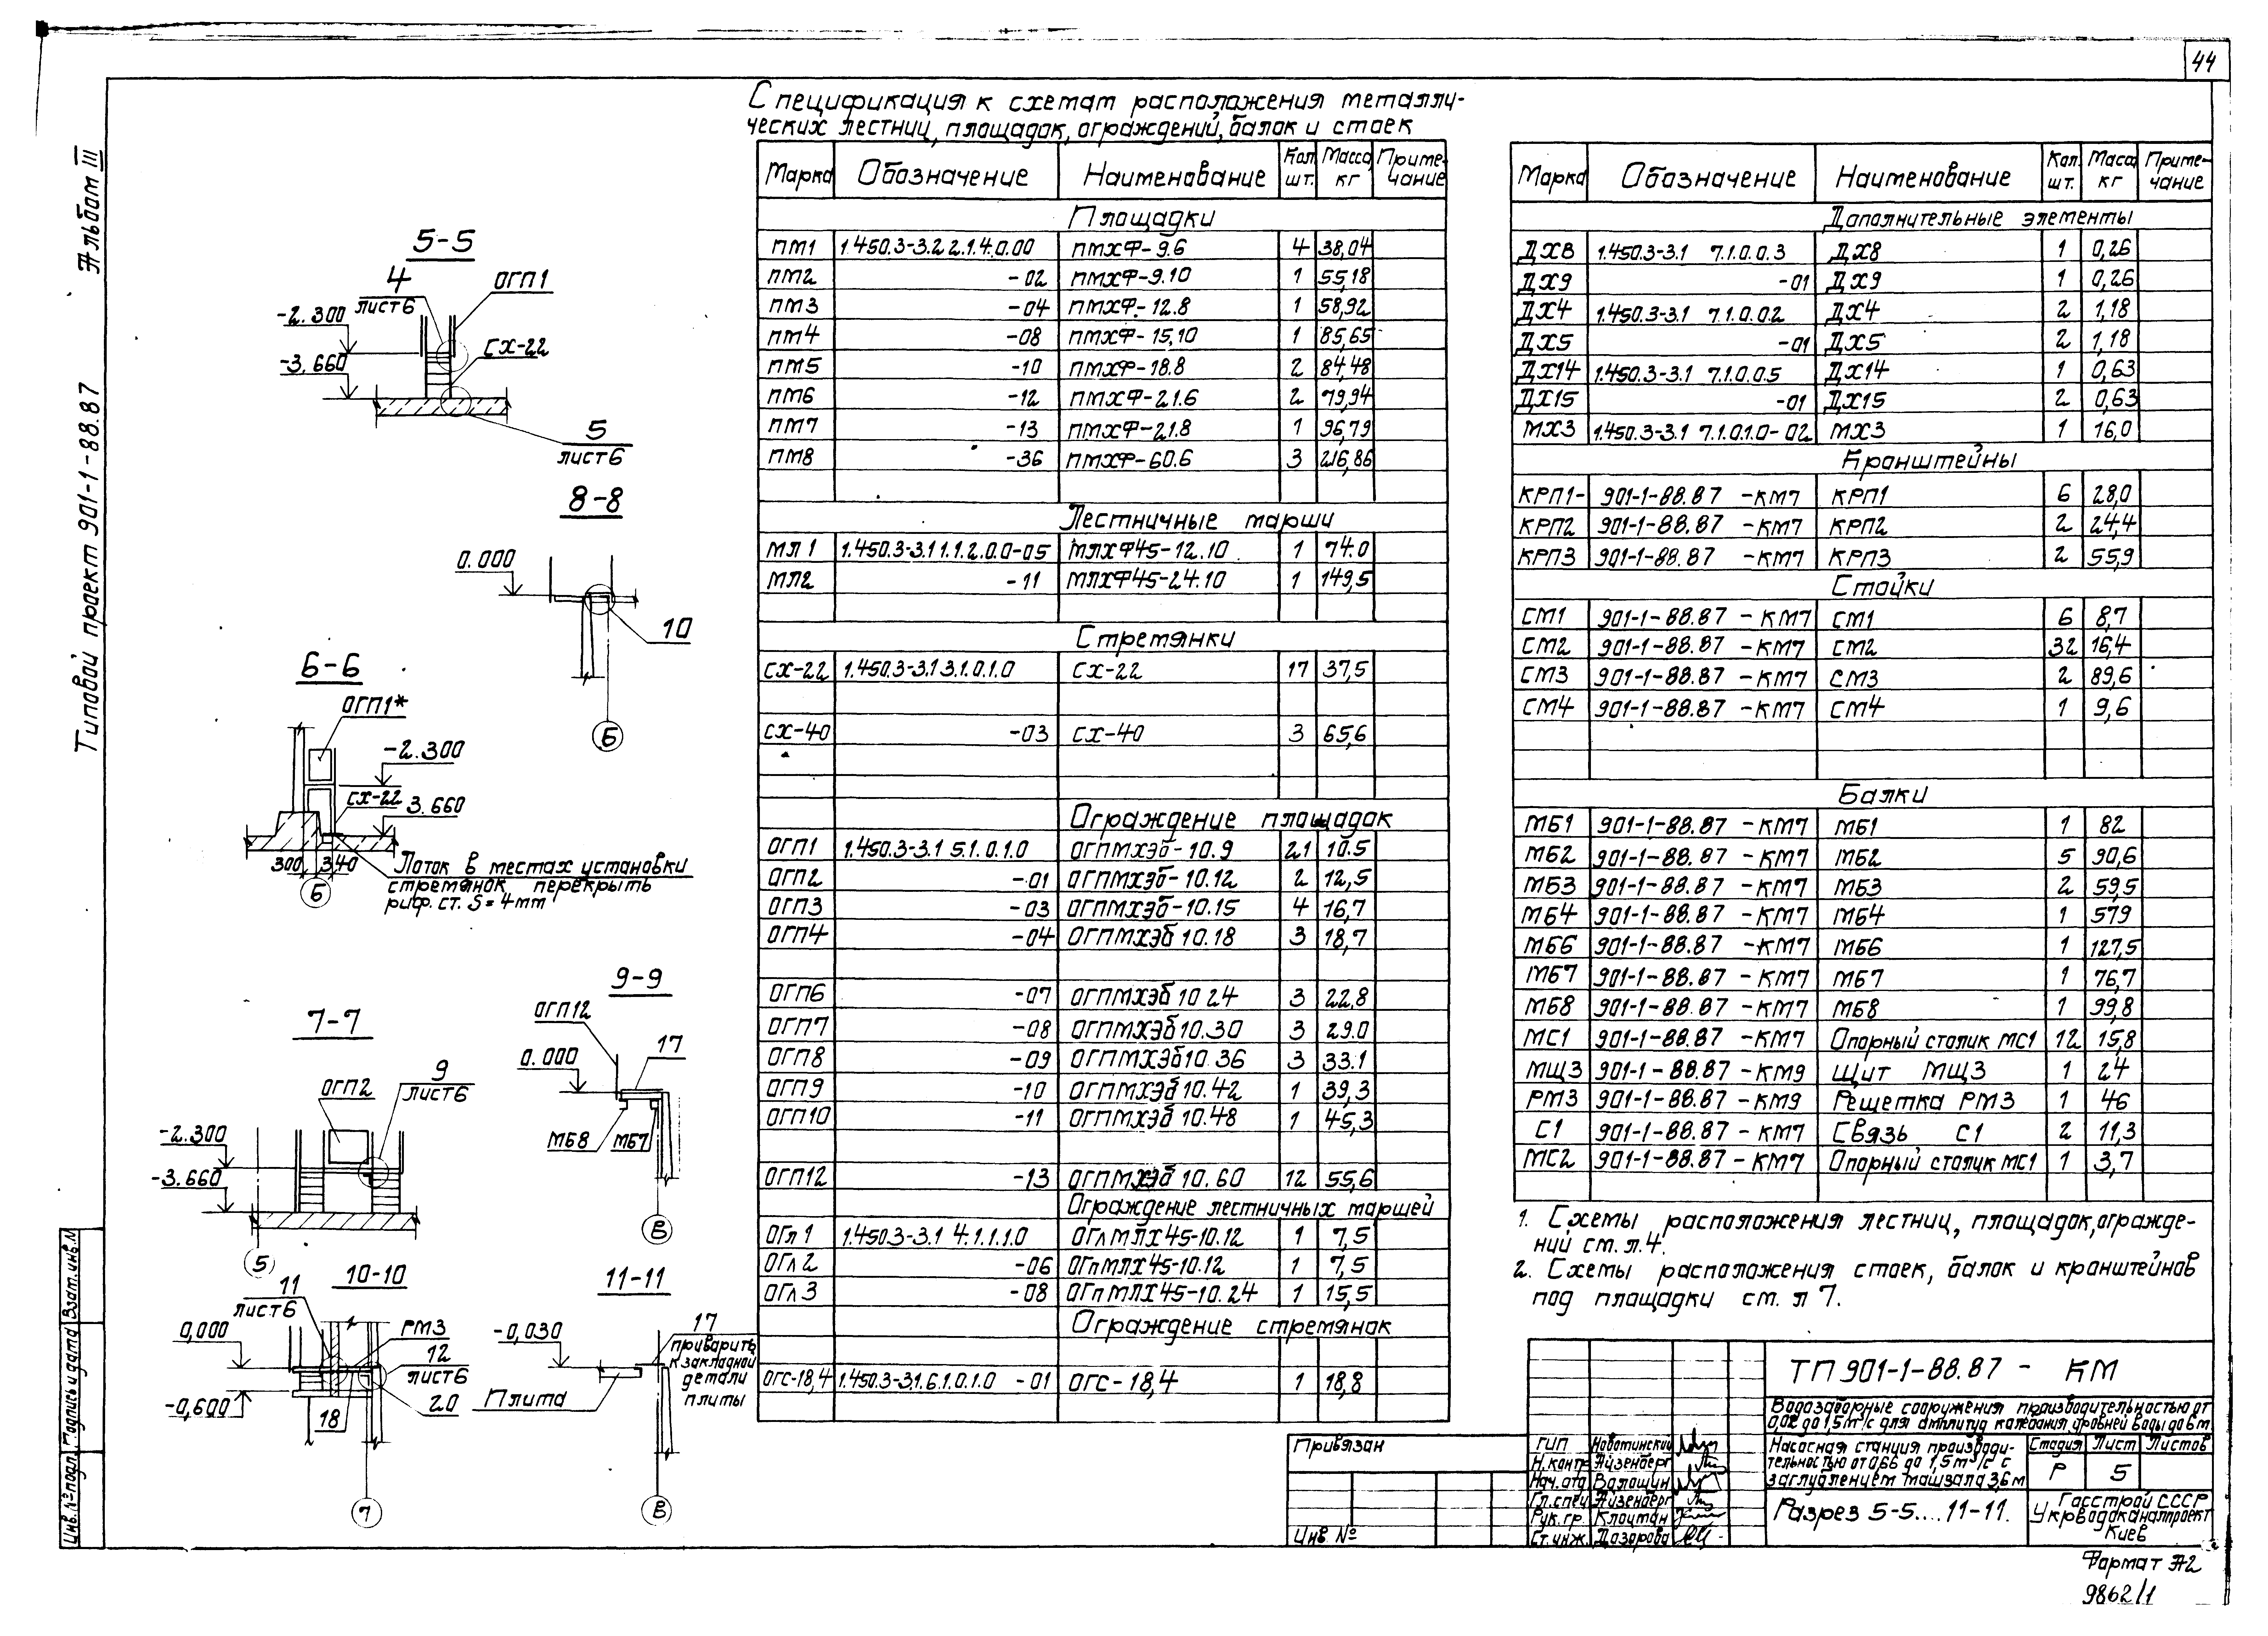 44
Альбом III
Типовой проект 901-1-88.87
Взам. инв. №
Подпись и дата
Инв. № подл.
5-5
4
лист 6
ОГП1
-2.300
СХ-22
-3.660
5
лист 6
8-8
0.000
10
Б
6-6
ОГП1*
-2.300
СХ-22
3.660
300
340
Лоток в местах установки
стремянок перекрыть
риф. ст. S=4мм
Б
7-7
ОГП2
9
лист 6
-2.300
-3.660
5
9-9
ОГП12
17
0.000
МБ8
МБ7
В
10-10
11
лист 6
0,000
РМ3
12
лист 6
-0,600
18
20
7
11-11
-0,030
17
приварить
к закладной
детали
плиты
Плита
В
Спецификация к схемам расположения металли-
ческих лестниц, площадок, ограждений, балок и стоек
Марка Обозначение Наименование Кол. шт. Масса кг Приме-чание
Площадки
ПМ1 1.450.3-3.2 2.1.4.0.00 ПМХФ-9.6 4 38,04
ПМ2 -02 ПМХФ-9.10 1 55,18
ПМ3 -04 ПМХФ-12.8 1 58,92
ПМ4 -08 ПМХФ-15.10 1 85,65
ПМ5 -10 ПМХФ-18.8 2 84,48
ПМ6 -12 ПМХФ-21.6 2 79,94
ПМ7 -13 ПМХФ-21.8 1 96,79
ПМ8 -36 ПМХФ-60.6 3 216,86
Лестничные марши
МЛ1 1.450.3-3.1 1.1.2.0.0-05 МЛХФ45-12.10 1 74.0
МЛ2 -11 МЛХФ45-24.10 1 149,5
Стремянки
СХ-22 1.450.3-3.1 3.1.0.1.0 СХ-22 17 37,5
СХ-40 -03 СХ-40 3 65,6
Ограждение площадок
ОГП1 1.450.3-3.1 5.1.0.1.0 ОГПМХЭб-10.9 21 10.5
ОГП2 -01 ОГПМХЭб-10.12 2 12,5
ОГП3 -03 ОГПМХЭб-10.15 4 16,7
ОГП4 -04 ОГПМХЭб 10.18 3 18,7
ОГП6 -07 ОГПМХЭб 10 24 3 22,8
ОГП7 -08 ОГПМХЭб 10.30 3 29.0
ОГП8 -09 ОГПМХЭб 10.36 3 33.1
ОГП9 -10 ОГПМХЭб 10.42 1 39,3
ОГП10 -11 ОГПМХЭб 10.48 1 45,3
ОГП12 -13 ОГПМХЭб 10.60 12 55,6
Ограждение лестничных маршей
ОГЛ1 1.450.3-3.1 4.1.1.1.0 ОГЛМЛХ45-10.12 1 7,5
ОГЛ2 -06 ОГПМЛХ45-10.12 1 7,5
ОГЛ3 -08 ОГПМЛХ45-10.24 1 15,5
Ограждение стремянок
ОГС-18,4 1.450.3-3.1.6.1.0.1.0 -01 ОГС-18,4 1 18,8
Марка Обозначение Наименование Кол. шт. Масса кг Приме-чание
Дополнительные элементы
ДХ8 1.450.3-3.1 7.1.0.0.3 ДХ8 1 0,26
ДХ9 -01 ДХ9 1 0,26
ДХ4 1.450.3-3.1 7.1.0.0.2 ДХ4 2 1,18
ДХ5 -01 ДХ5 2 1,18
ДХ14 1.450.3-3.1 7.1.0.0.5 ДХ14 1 0,63
ДХ15 -01 ДХ15 2 0,63
МХ3 1.450.3-3.1 7.1.0.1.0-02 МХ3 1 16,0
Кронштейны
КРП1- 901-1-88.87 -КМ7 КРП1 6 28,0
КРП2 901-1-88.87 -КМ7 КРП2 2 24,4
КРП3 901-1-88.87 -КМ7 КРП3 2 55,9
Стойки
СМ1 901-1-88.87 -КМ7 СМ1 6 8,7
СМ2 901-1-88.87 -КМ7 СМ2 32 16,4
СМ3 901-1-88.87 -КМ7 СМ3 2 89,6
СМ4 901-1-88.87 -КМ7 СМ4 1 9,6
Балки
МБ1 901-1-88.87 -КМ7 МБ1 1 82
МБ2 901-1-88.87 -КМ7 МБ2 5 90,6
МБ3 901-1-88.87 -КМ7 МБ3 2 59,5
МБ4 901-1-88.87 -КМ7 МБ4 1 579
МБ6 901-1-88.87 -КМ7 МБ6 1 127,5
МБ7 901-1-88.87 -КМ7 МБ7 1 76,7
МБ8 901-1-88.87 -КМ7 МБ8 1 99,8
МС1 901-1-88.87 -КМ7 Опорный столик МС1 12 15,8
МЩ3 901-1-88.87 -КМ9 Щит МЩ3 1 24
РМ3 901-1-88.87 -КМ9 Решетка РМ3 1 46
С1 901-1-88.87 -КМ7 Связь С1 2 11,3
МС2 901-1-88.87 -КМ7 Опорный столик МС1 1 3,7
1. Схемы расположения лестниц, площадок, огражде-
ний см. л. 4.
2. Схемы расположения стоек, балок и кронштейнов
под площадки см. л 7.
ТП 901-1-88.87 - КМ
Водозаборные сооружения производительностью от
0,02 до 1,5 м³/с для амплитуд колебания уровней воды до 6 м
Насосная станция производи-
тельностью от 0,66 до 1,5 м³/с с
заглублением машзала 3,6 м
Стадия Лист Листов
Р 5
Разрез 5-5....11-11.
Госстрой СССР
Укрводоканалпроект
Киев
Привязан
Инв. №
ГИП Новотинский
Н. контр Айзенберг
Нач. отд Волошин
Гл. спец Айзенберг
Рук. гр. Клоцман
Ст. инж. Дозорова
Формат А2
9862/1